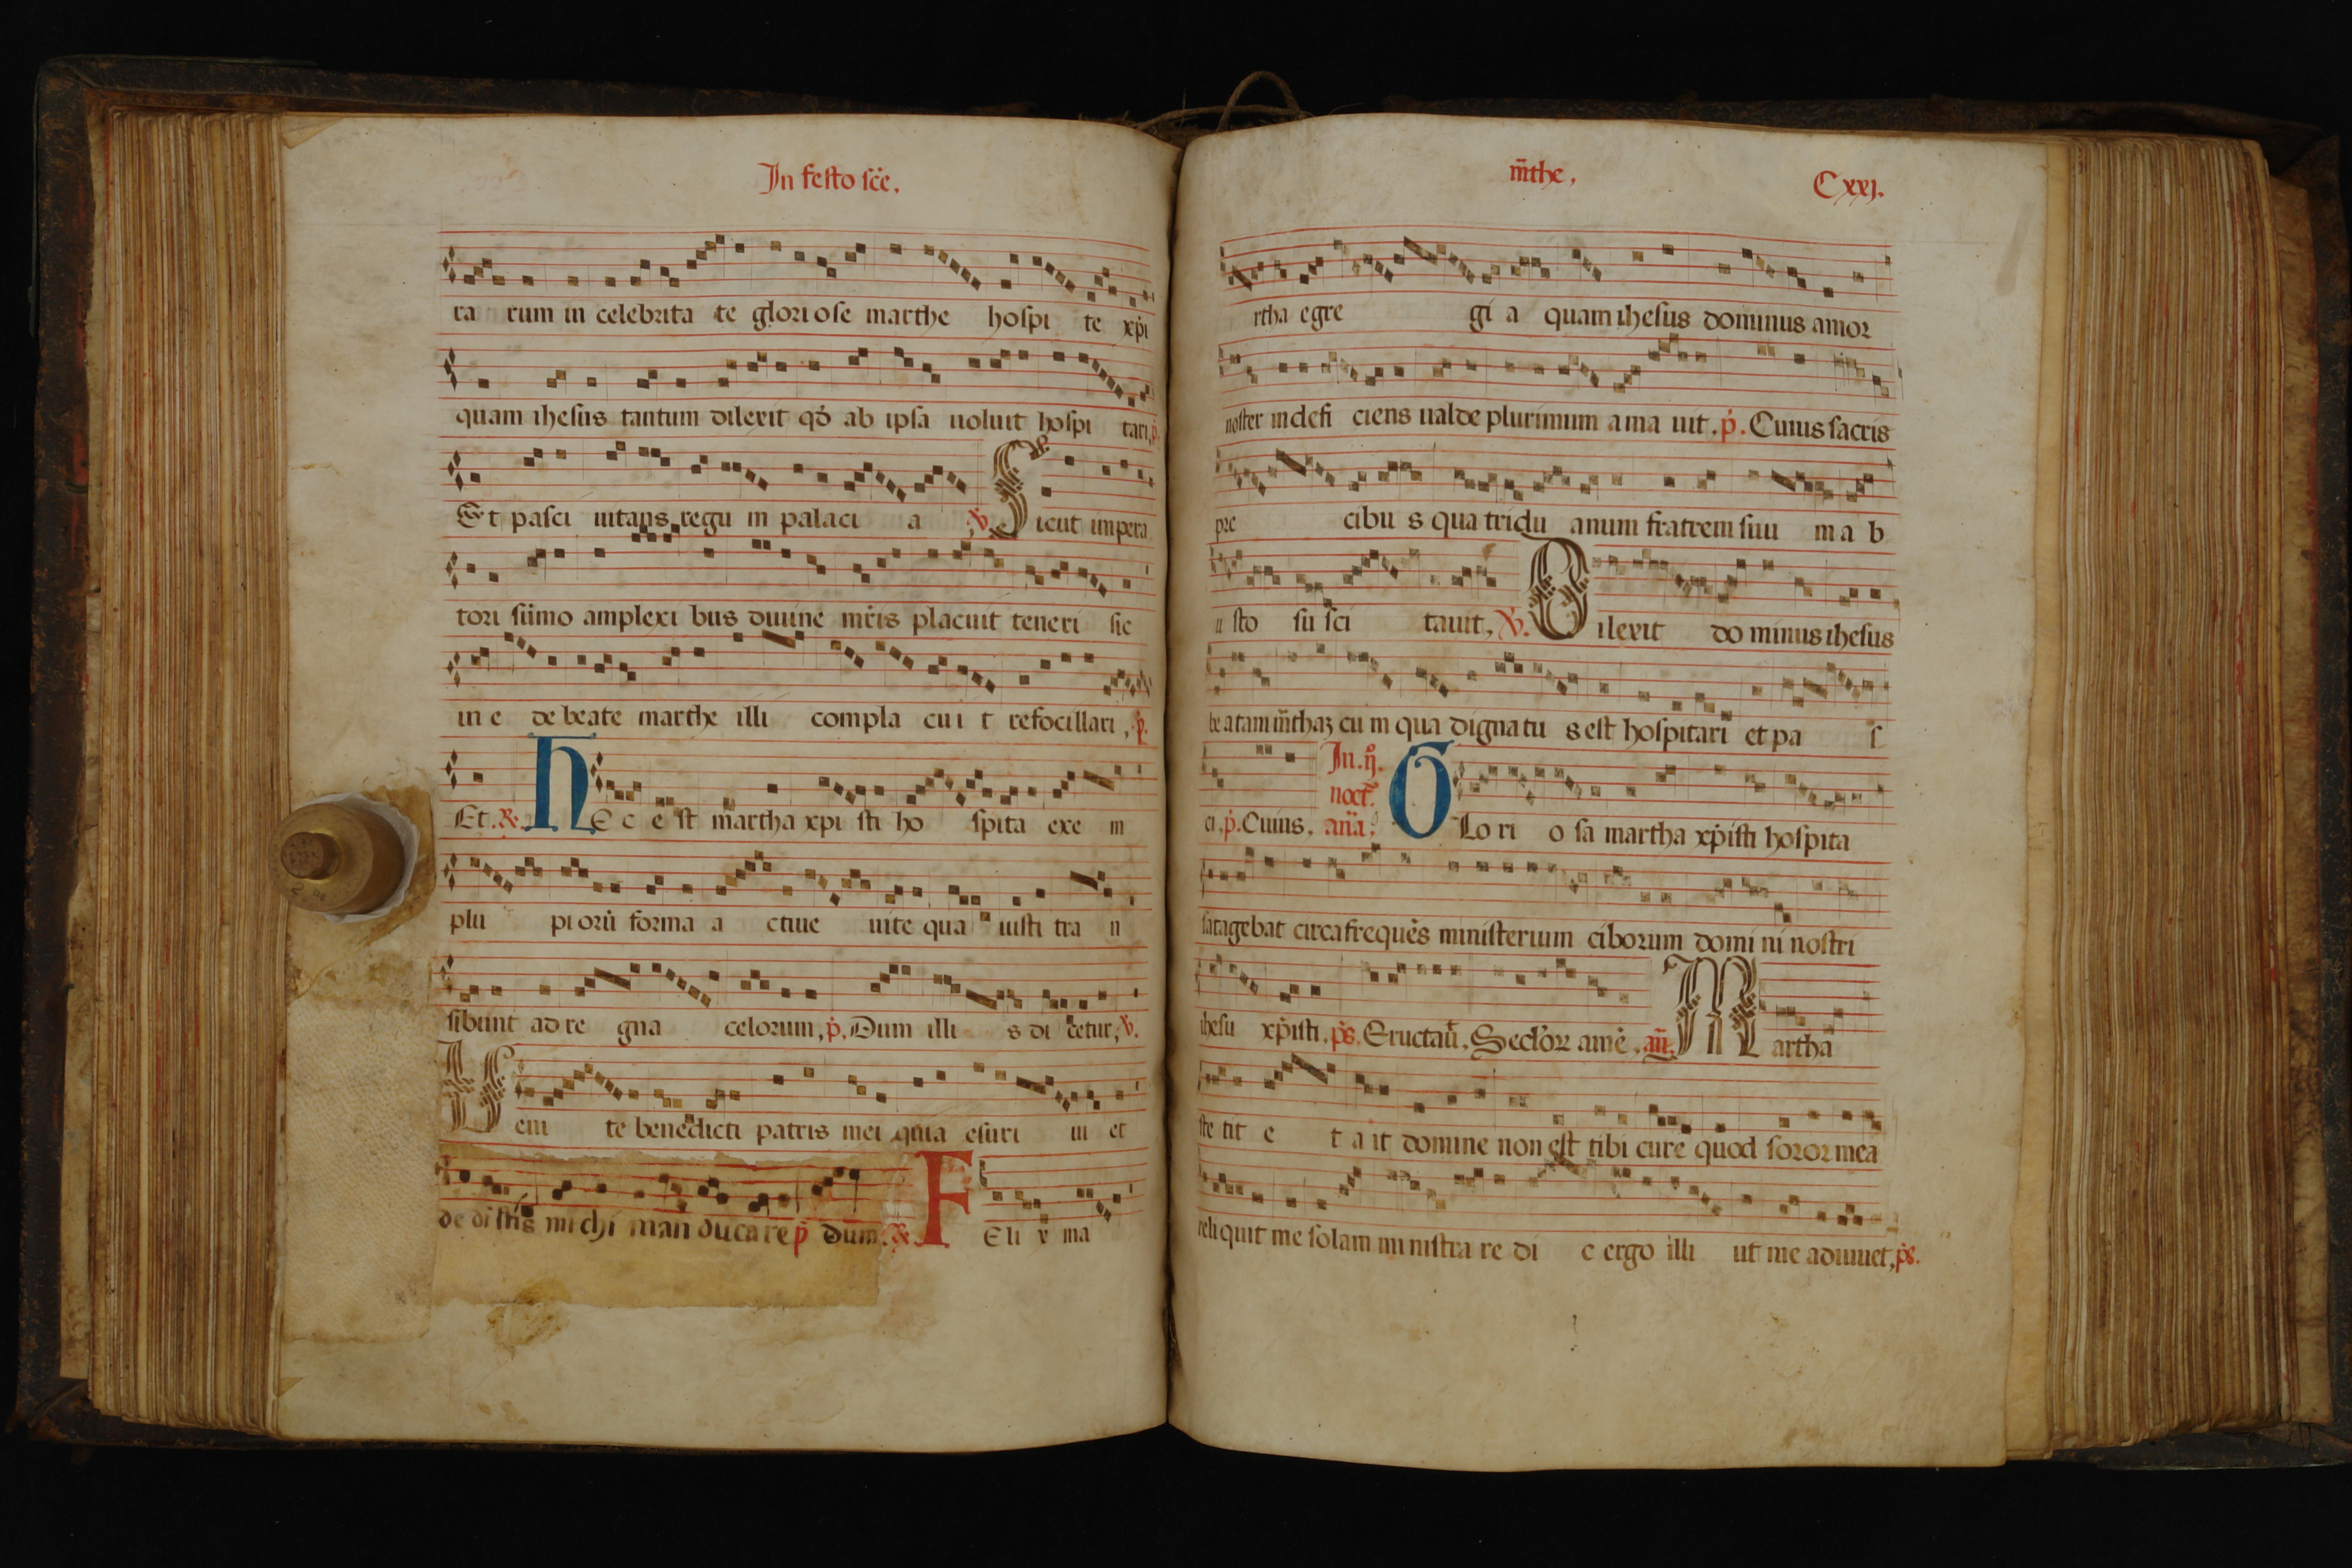 In festo sc̄e.
ra rum in celebrita te glori ose marthe hospi te xp̄i
quam ihesus tantum dilexit qđ ab ipsa uoluit hospi tari, p̄.
Et pasci uitans regu in palaci a ꝟ. Sicut impera
tori sūmo amplexi bus diuine mr̄is placuit teneri sic
in e de beate marthe illi compla cui t refocillari, p̄.
Et. ℟. HEc e st martha xpi sti ho spita exe m
plu pi orū forma a ctiue uite qua iusti tra n
sibunt ad re gna celorum, p̄. Dum illi s di cetur, ꝟ.
Ueni te benedicti patris mei quia esuri ui et
de di stis mi chi man du ca re p̄ dum. ℟. FEli x ma
m̄the, Cxxj.
rtha egre gi a quam ihesus dominus amor
noster indefi ciens ualde plurimum ama uit. p̄. Cuius sacris
pre cibu s qua tridu anum fratrem suu m a b
u sto su sci tauit, ꝟ. Dilexit do minus ihesus
be atam m̄thaz cu m qua dignatu s est hospitari et pa s
ci, p̄. Cuius. In. ij. noct. an̄a, GLo ri o sa martha xp̄isti hospita
satagebat circa frequēs ministerium ciborum domi ni nostri
ihesu xp̄isti. p̄s. Eructau̅. Seclor̄ amē. an̄. Martha
ste tit e t a it domine non est tibi cure quod soror mea
reliquit me solam mi nistra re di c ergo illi ut me adiuuet, p̄s.